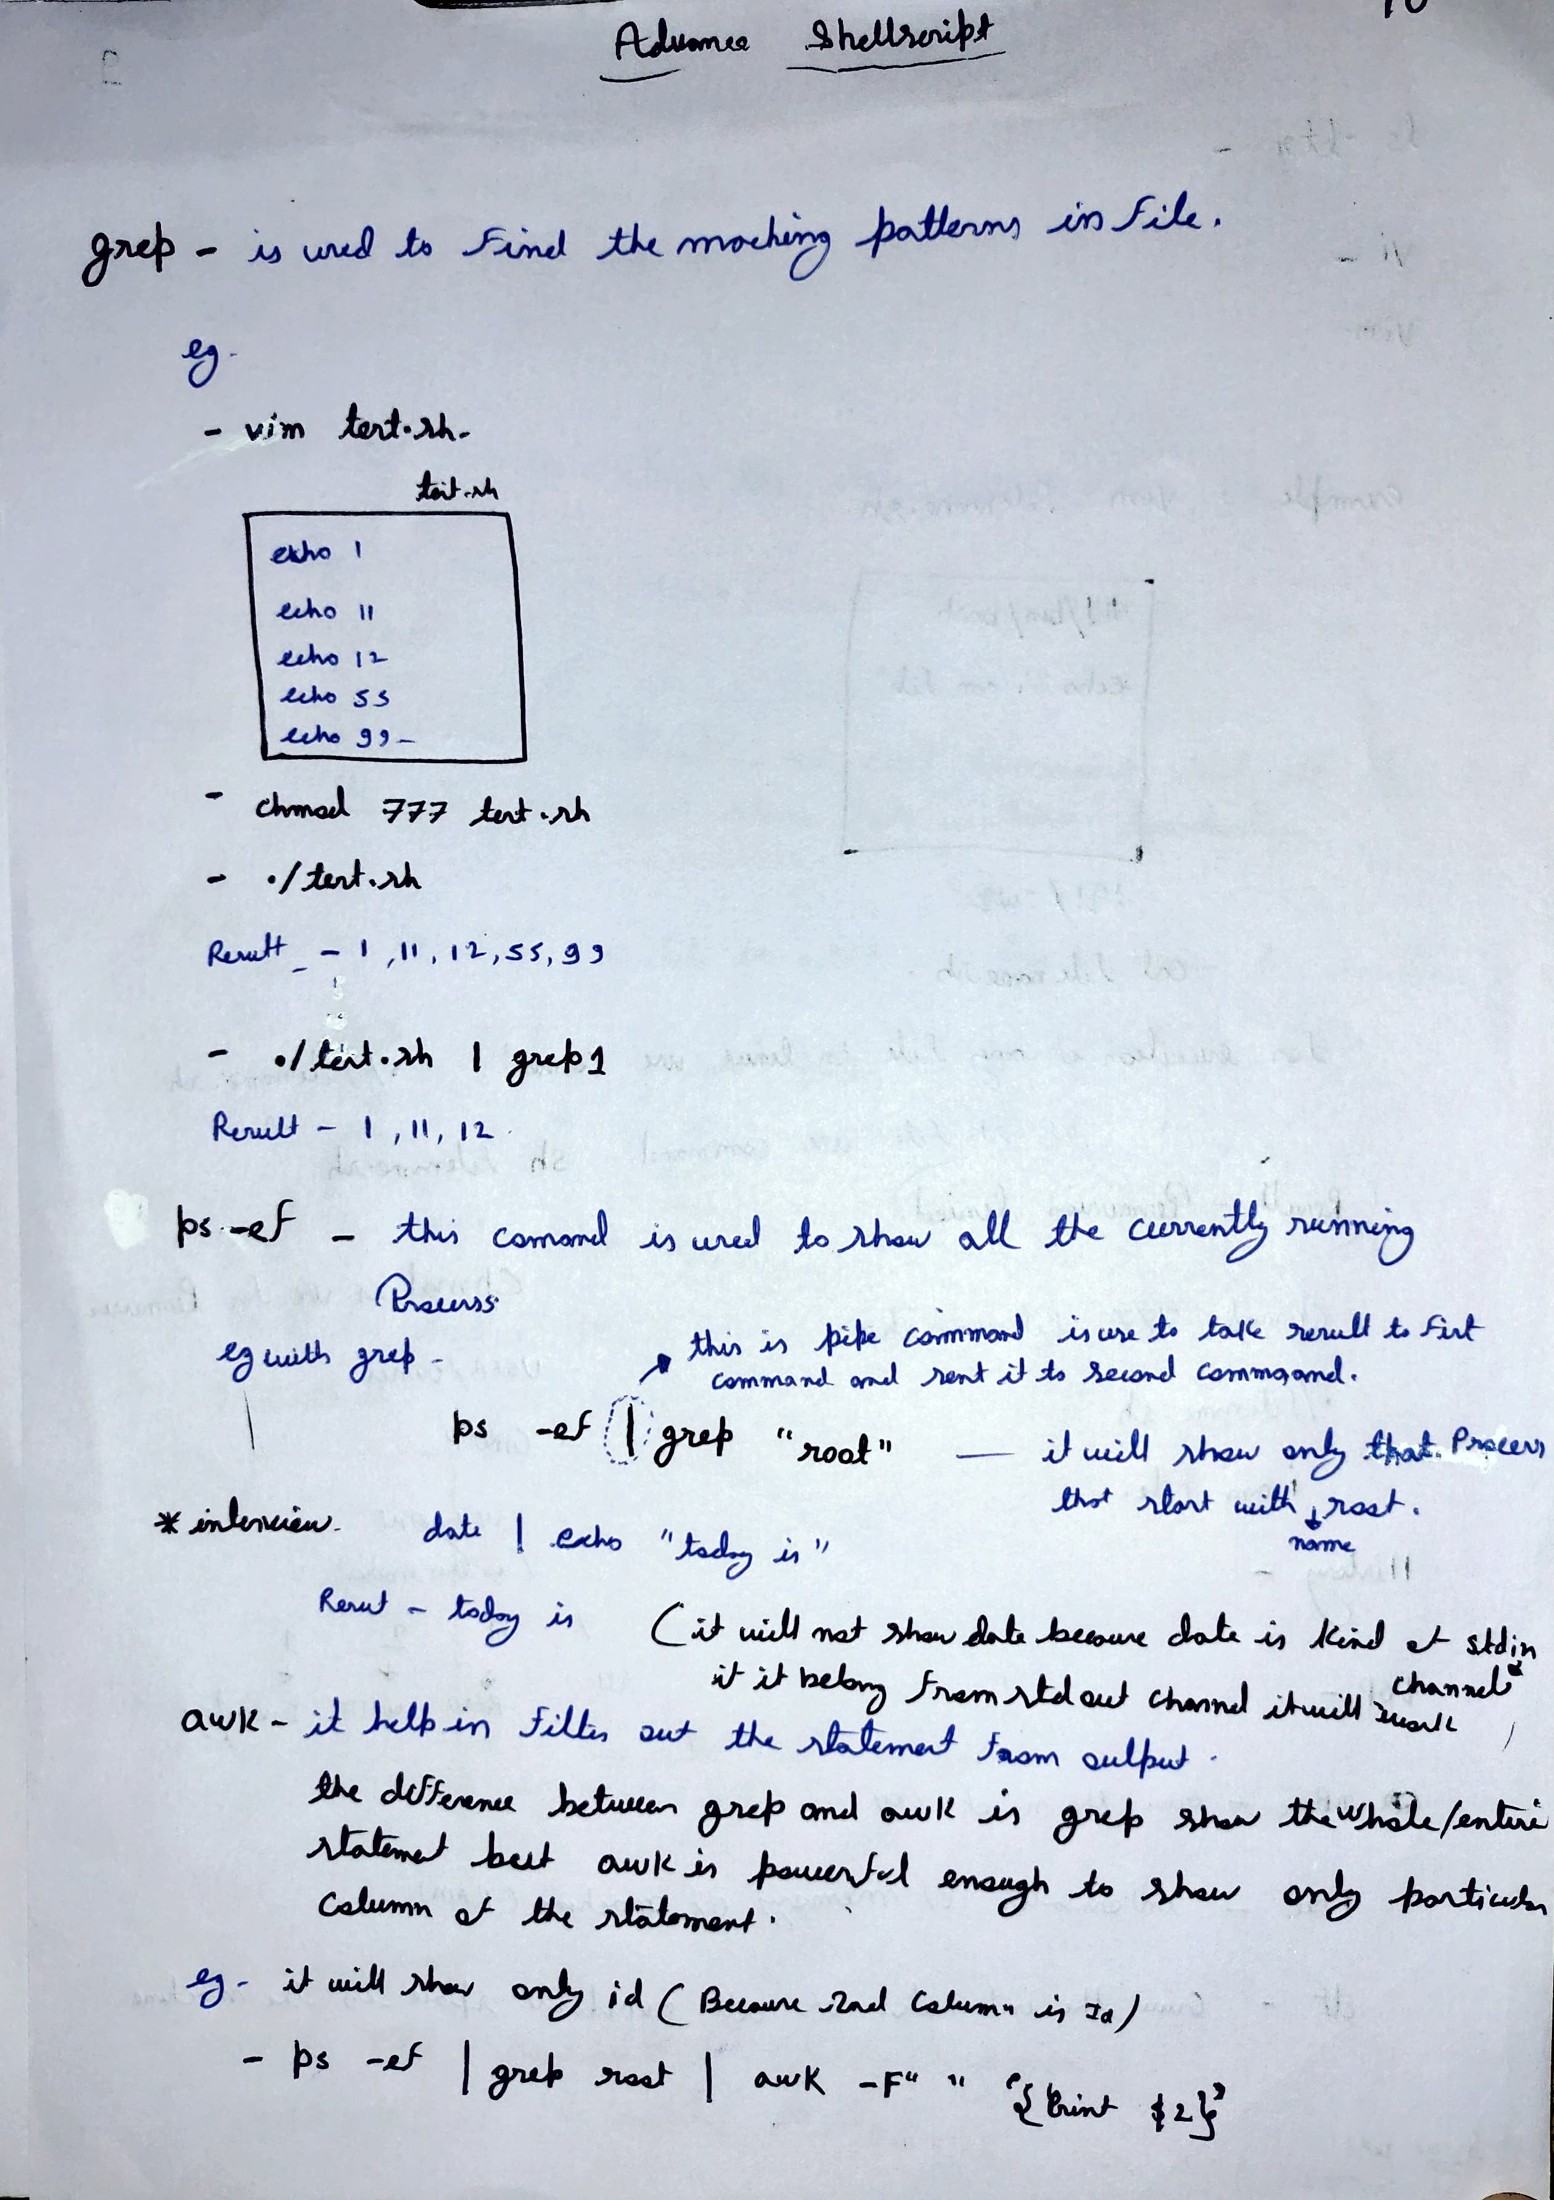 10
Advance Shellscript
grep - is used to find the maching patterns in file.
eg.
- vim test.sh
test.sh
echo 1
echo 11
echo 12
echo 55
echo 99
- chmod 777 test.sh
- ./test.sh
Result - 1, 11, 12, 55, 99
- ./test.sh | grep 1
Result - 1, 11, 12
ps -ef - this comand is used to show all the currently running
Process
eg with grep -
this is pipe command is use to take result to first
command and sent it to second command.
ps -ef | grep "root" — it will show only that Process
that start with root.
name
* interview. date | echo "today is"
Resut - today is (it will not show date because date is kind of stdin
channel
it it belong from stdout channel it will work
awk - it help in filter out the statement from output.
the difference between grep and awk is grep show the whole/entire
statement but awk is powerful enough to show only particular
Column of the statement.
eg - it will show only id (Because 2nd Column is Id)
- ps -ef | grep root | awk -F" " '{print $2}'